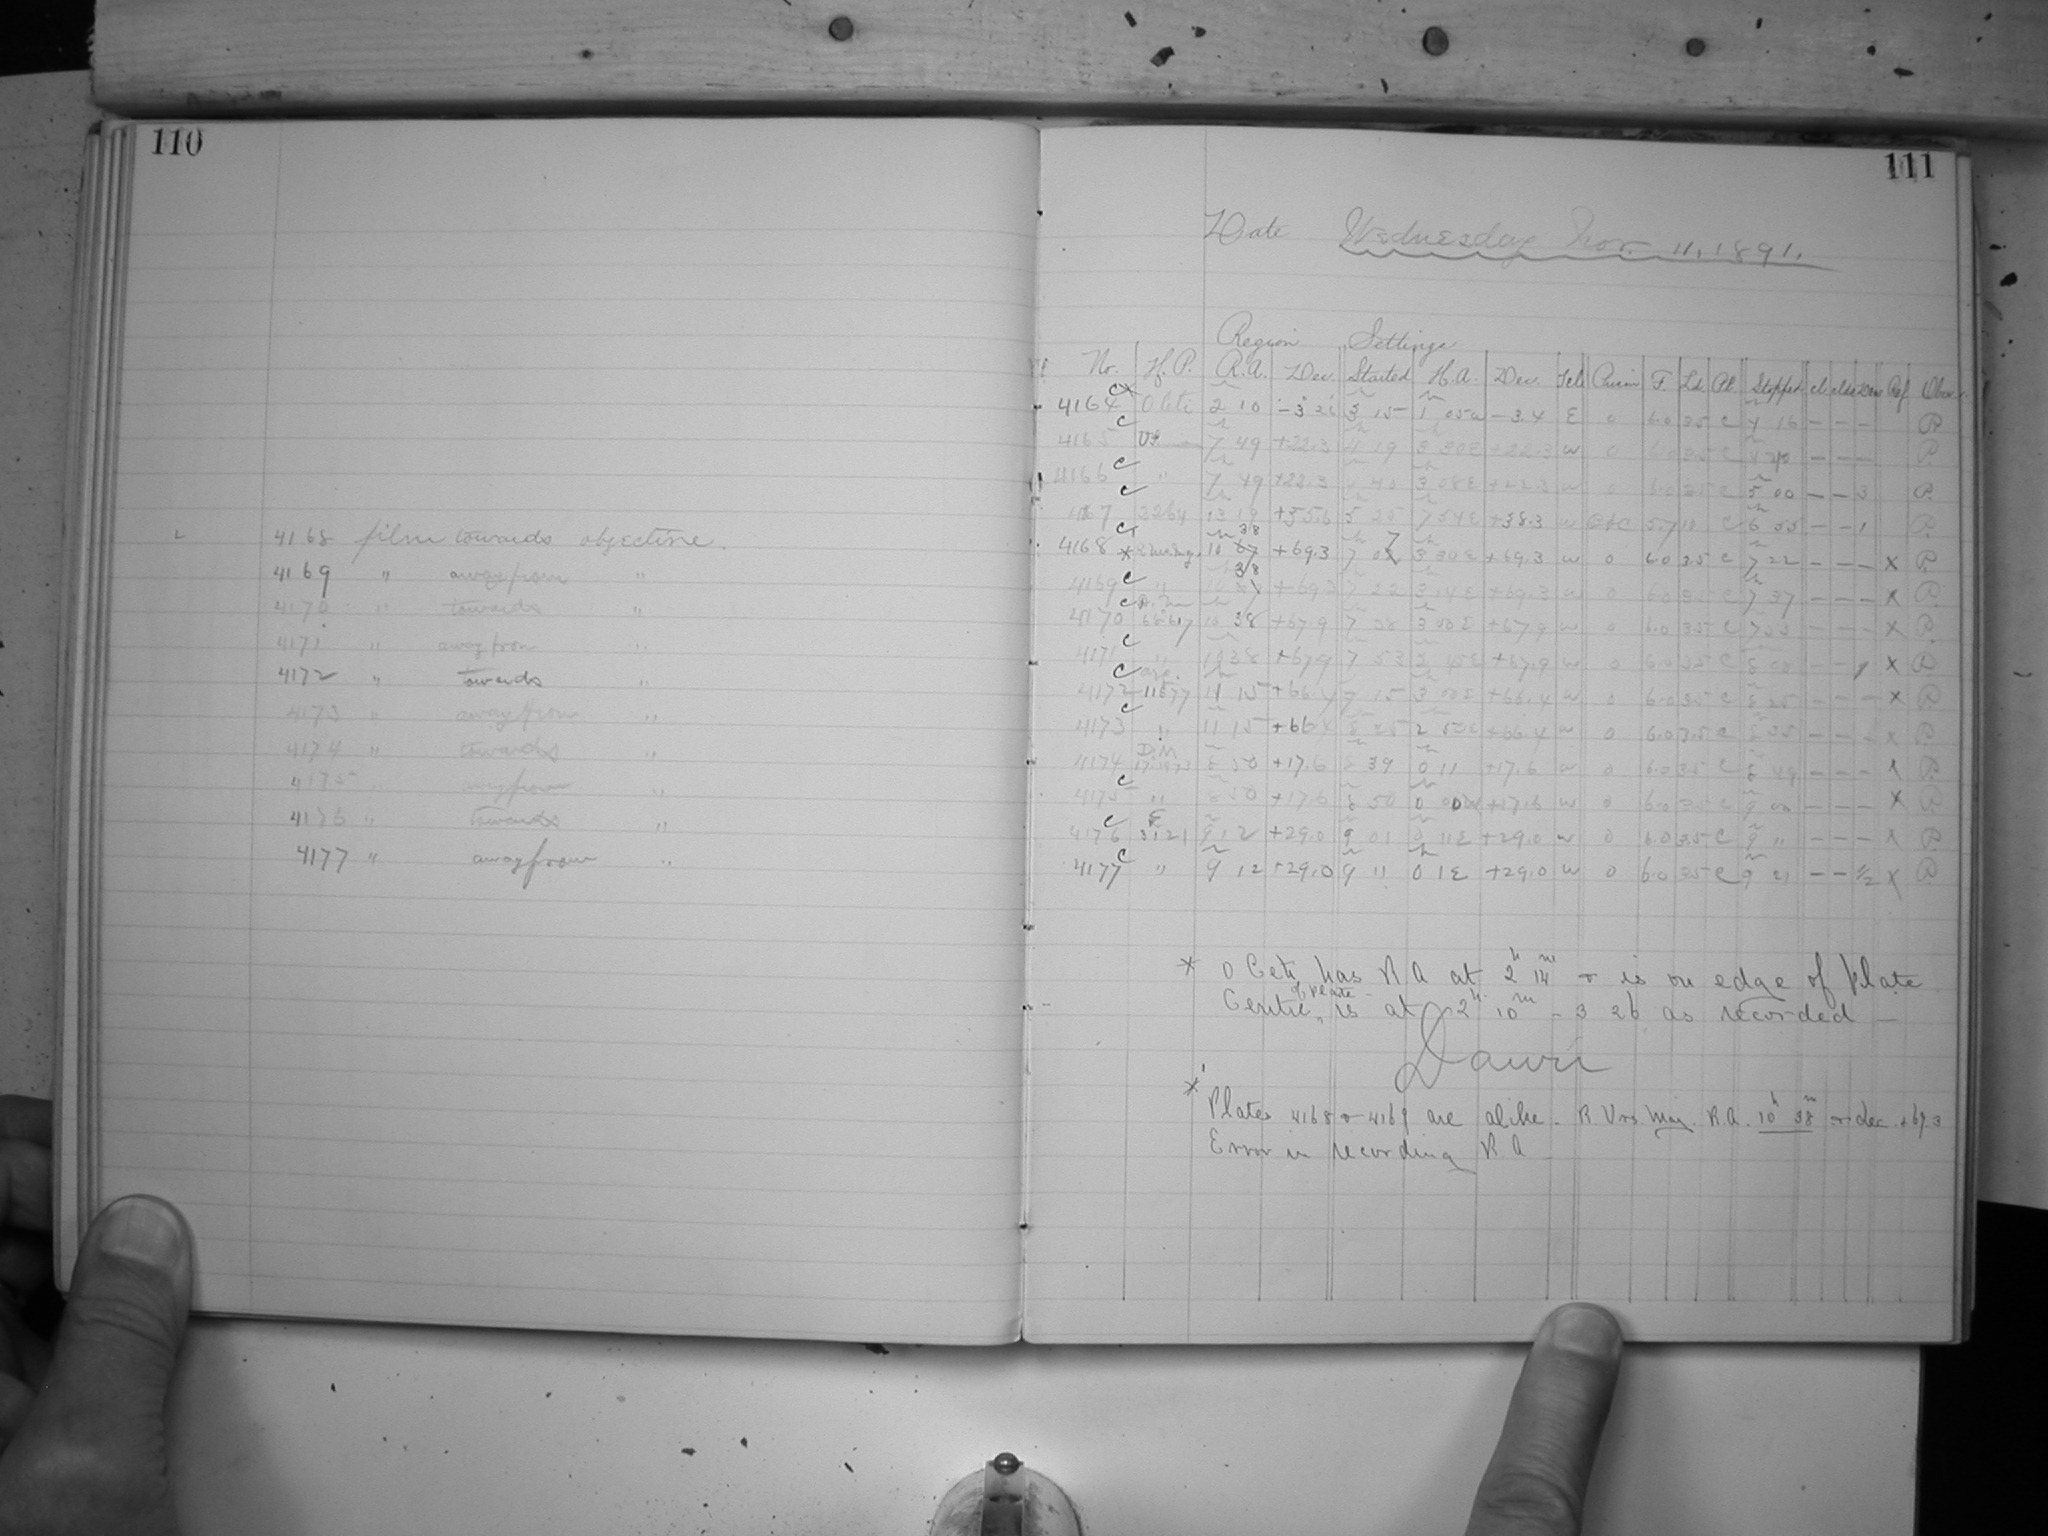 110
4168 film towards objective.
4169 " away from "
4170 " towards "
4171 " away from "
4172 " towards "
4173 " away from "
4174 " towards "
4175 " away from "
4176 " towards "
4177 " away from "
111
Date Wednesday Nov. 11, 1891.
Region Settings
No. H.P. R.A. Dec. Started H.A. Dec. Tel. F. Ld. Pl. Stopped cl. Ref Obsr.
4164 O Ceti 2 10 3 15 1 05w -3.4 E 0 6.0 35 C 4 16 - - - P.
4165 7 49 +22.3 4 19 3 30E +22.3 w 0 6.0 35 C - - - P.
4166 " 7 49 +22.3 3 08E +22.3 w 0 6.0 35 C 5 00 - - 3 P.
4167 3264 13 19 +55.6 5 25 7 54E +38.3 w C 6 55 - - 1 P.
4168 10 38 +69.3 7 +69.3 w 0 6.0 35 C 7 22 - - - X P.
4169 " 38 +69.3 7 22 3 14E +69.3 w 0 6.0 35 C 7 37 - - - X P.
4170 10 38 +67.9 7 38 3 00E +67.9 w 0 6.0 35 C - - - X P.
4171 " 10 38 +67.9 7 53 2 45E +67.9 w 0 6.0 35 C 8 08 - - X P.
4172 11577 11 15 +66.4 7 15 3 00E +66.4 w 0 6.0 35 C 8 25 - - - X P.
4173 " 11 15 +66.4 8 25 2 50E +66.4 w 0 6.0 35 C 8 35 - - - X P.
4174 D.M. 8 50 +17.6 8 39 0 11 +17.6 w 0 6.0 35 C 8 49 - - - X P.
4175 " 8 50 +17.6 8 50 0 00 +17.6 w 0 6.0 35 C 9 00 - - - X P.
4176 3121 9 12 +29.0 9 01 0 11E +29.0 w 0 6.0 35 C 9 11 - - - X P.
4177 " 9 12 +29.0 9 11 0 1E +29.0 w 0 6.0 35 C 9 21 - - 1/2 X P.
* O Ceti has R A at 2h 14m & is on edge of Plate
Centre of plate is at 2h 10m - 3 26 as recorded -
* Plates 4168 & 4169 are alike - R. Urs. Maj. R.A. 10h 38m & dec. +69.3
Error in recording R A